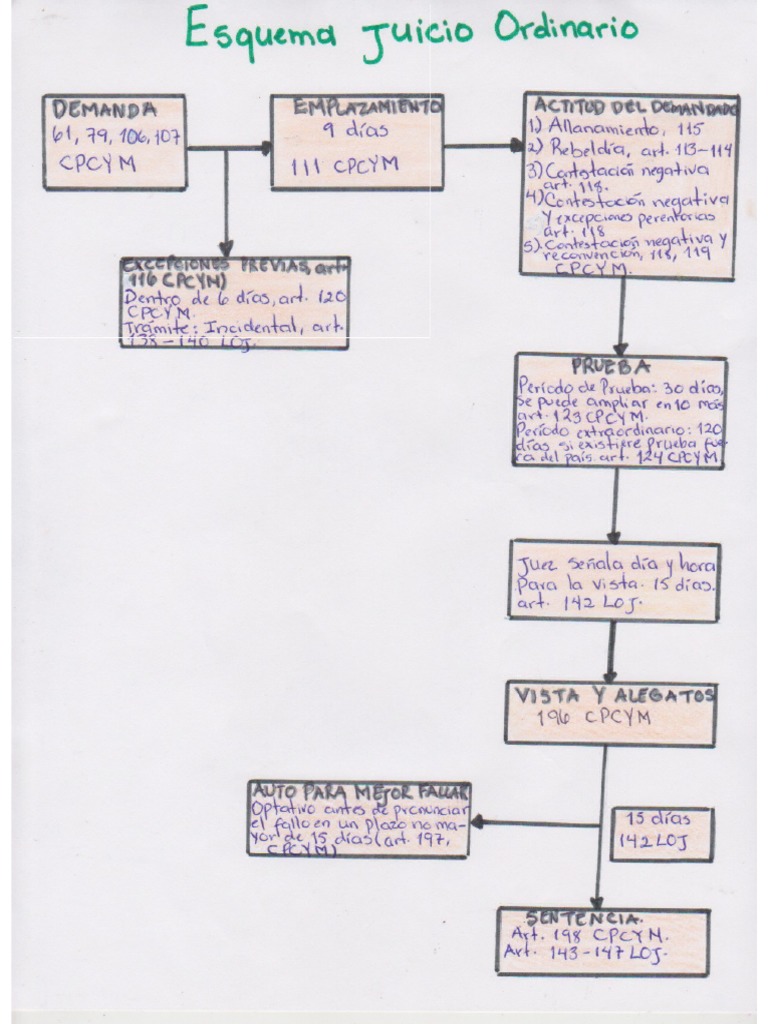 Esquema Juicio Ordinario
DEMANDA
61, 79, 106, 107
CPCYM
EMPLAZAMIENTO
9 días
111 CPCYM
ACTITUD DEL DEMANDADO
1) Allanamiento, 115
2) Rebeldía, art. 113-114
3) Contestación negativa
art. 118.
4) Contestación negativa
y excepciones perentorias
art. 118
5). Contestación negativa y
reconvención, 118, 119
CPCYM.
EXCEPCIONES PREVIAS, art.
116 CPCYM)
Dentro de 6 días, art. 120
CPCYM.
Trámite: Incidental, art.
138-140 LOJ.
PRUEBA
Período de Prueba: 30 días,
se puede ampliar en 10 más
art. 123 CPCYM.
Período extraordinario: 120
días si existiere prueba fue-
ra del país. art. 124 CPCYM
Juez señala día y hora
para la vista. 15 días.
art. 142 LOJ.
VISTA Y ALEGATOS
196 CPCYM
AUTO PARA MEJOR FALLAR
Optativo antes de pronunciar
el fallo en un plazo no ma-
yor de 15 días (art. 197,
CPCYM)
15 días
142 LOJ
SENTENCIA.
Art. 198 CPCYM.
Art. 143-147 LOJ.